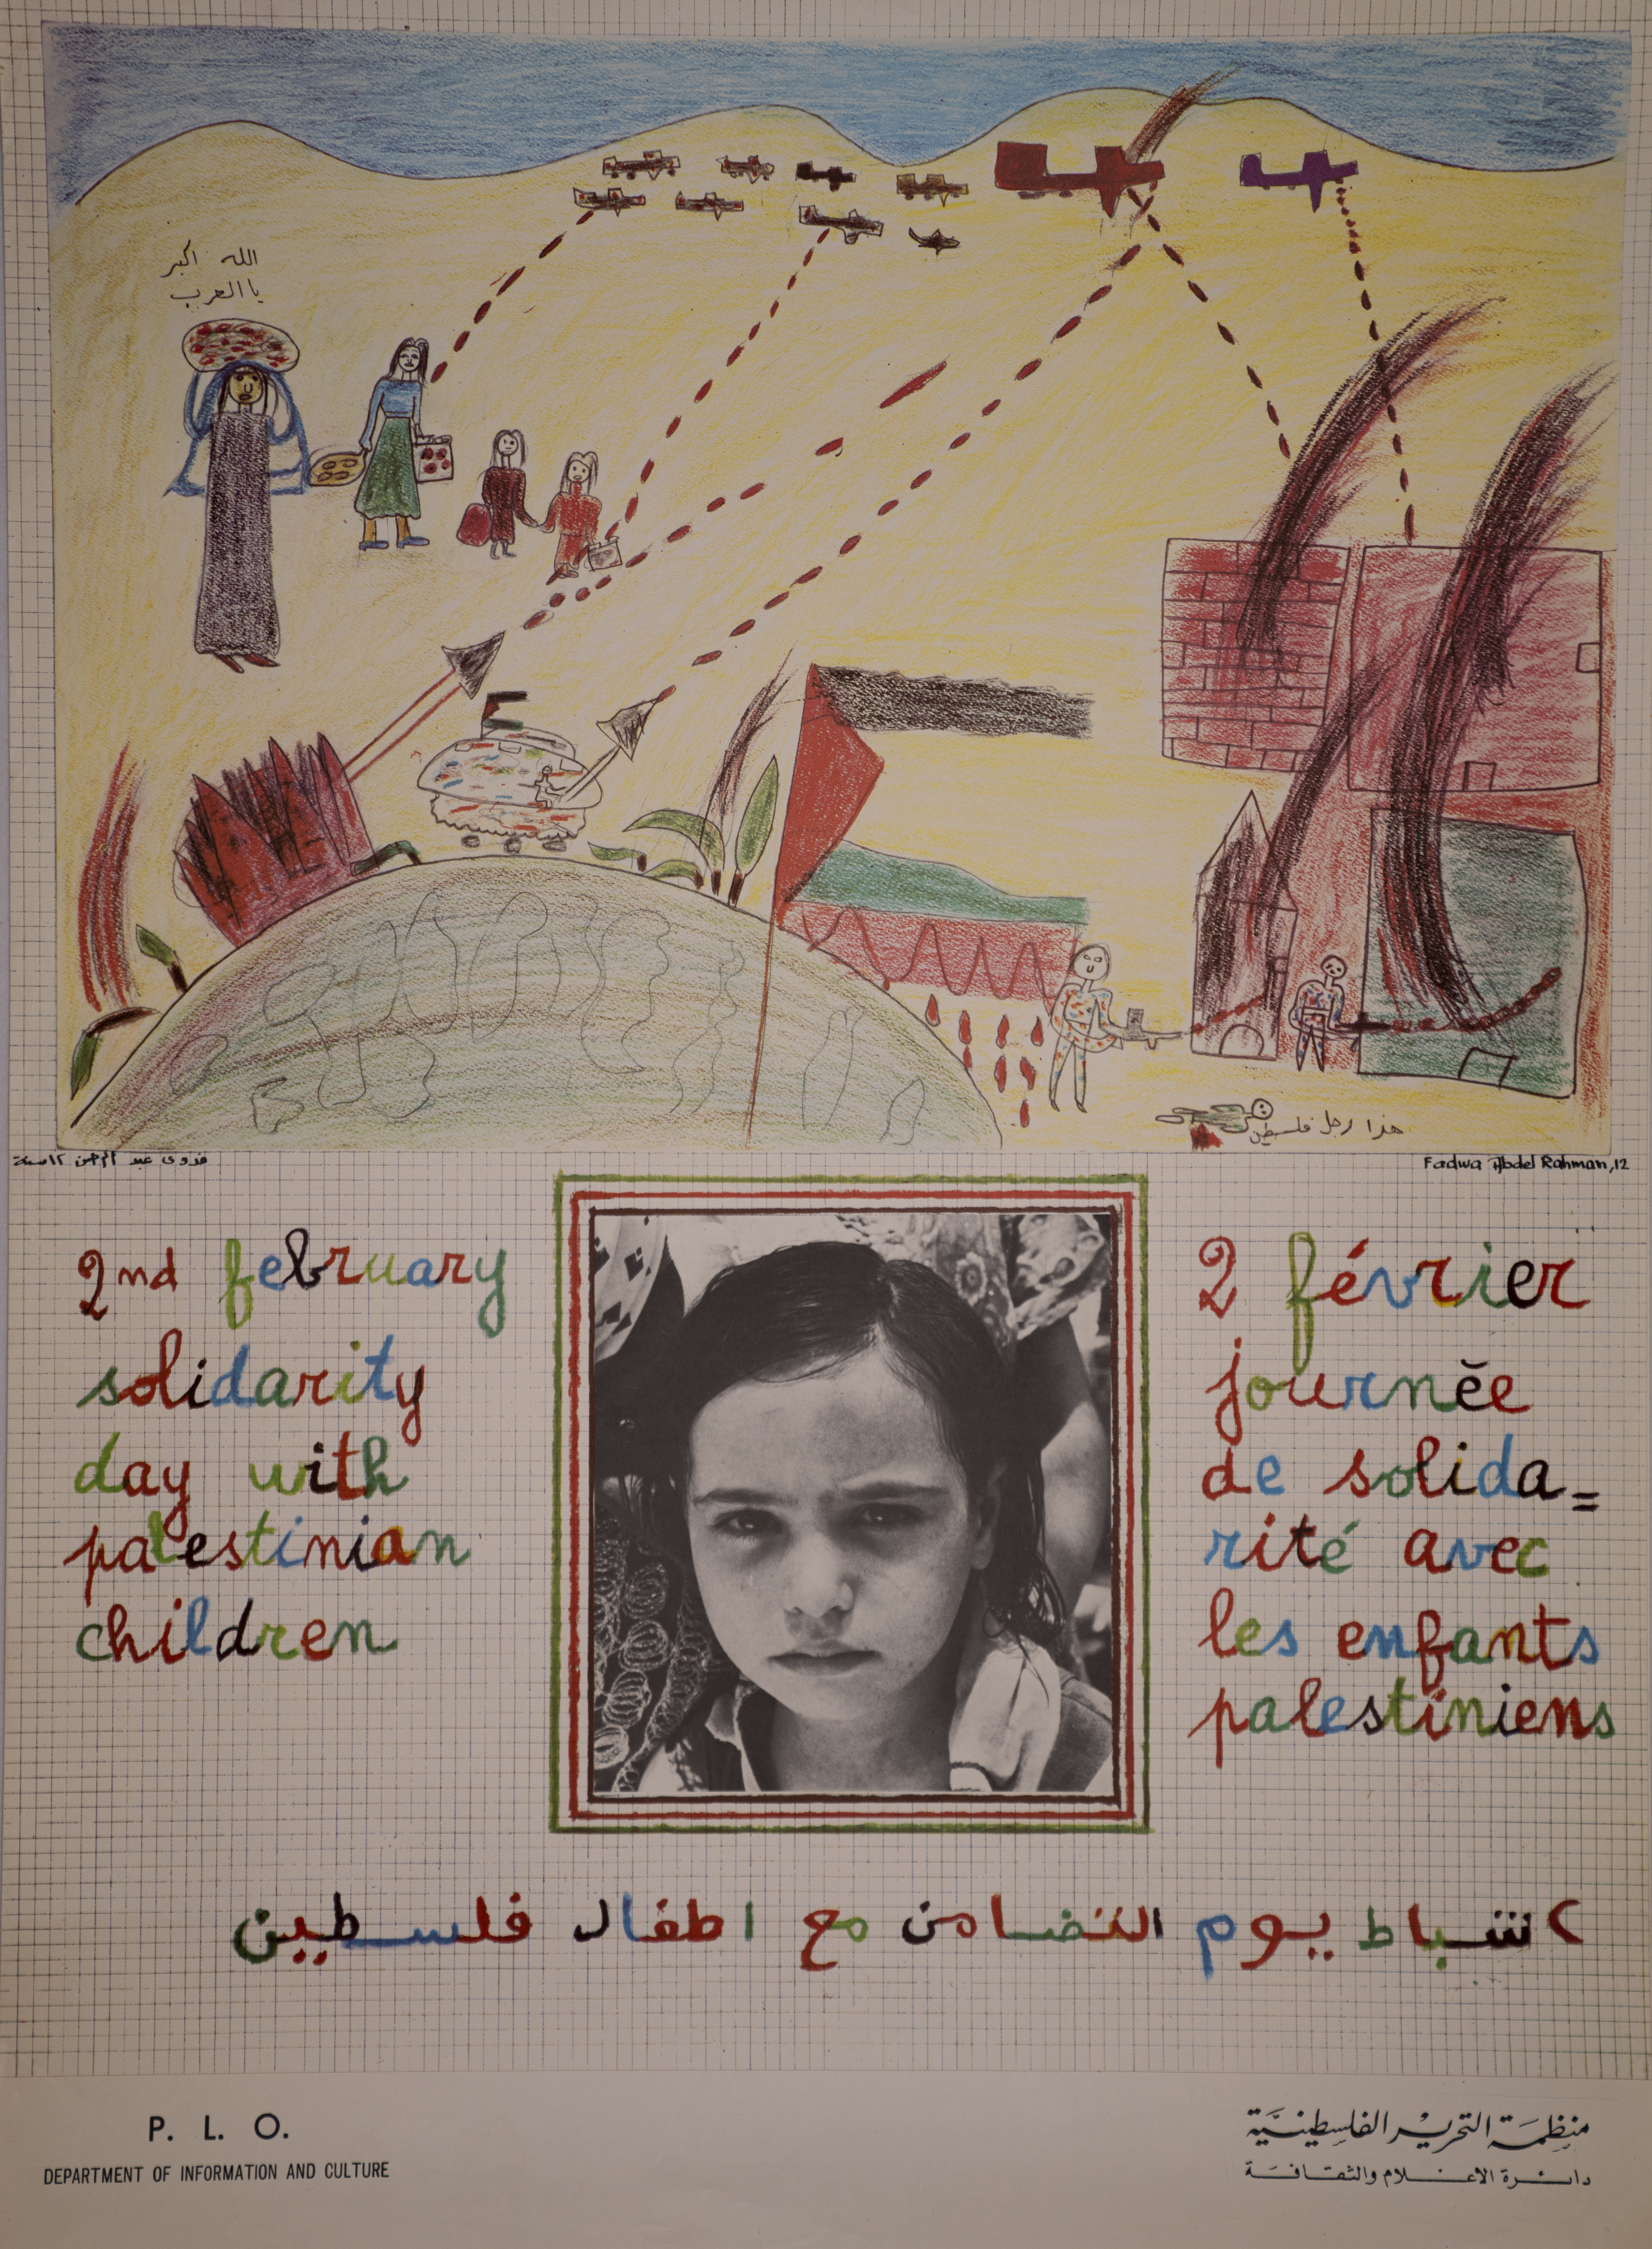 الله اكبر
يا العرب
هذا رجل فلسطين
فدوى عبد الرحمن ١٢ سنة
Fadwa Abdel Rahman, 12
2nd february
solidarity
day with
palestinian
children
2 février
journée
de solida=
rité avec
les enfants
palestiniens
٢ شباط يوم التضامن مع اطفال فلسطين
P. L. O.
DEPARTMENT OF INFORMATION AND CULTURE
منظمة التحرير الفلسطينية
دائرة الاعلام والثقافة